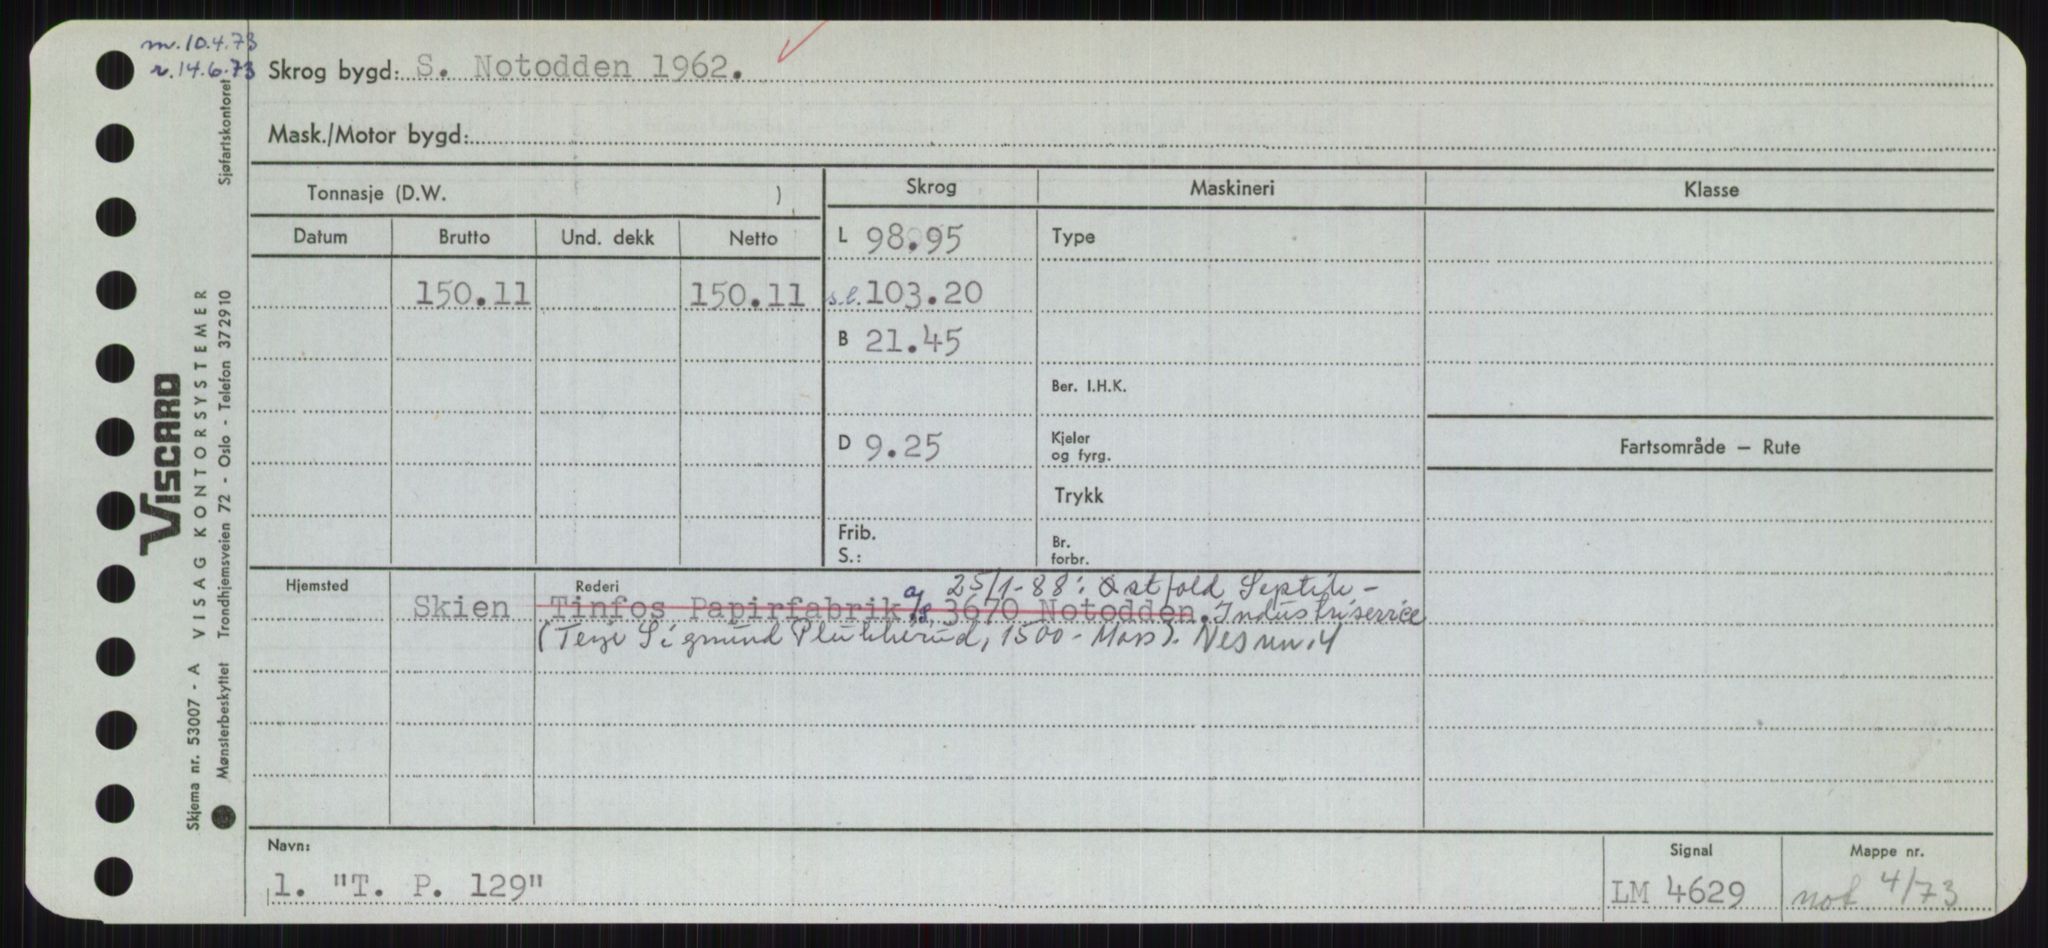 m. 10.4.73
r. 14.6.73
Skrog bygd: S. Notodden 1962.
Mask./Motor bygd:
Tonnasje (D.W. )
Skrog
Maskineri
Klasse
Datum
Brutto
Und. dekk
Netto
L 98.95
Type
150.11
150.11
s.l. 103.20
B 21.45
Ber. I.H.K.
D 9.25
Kjeler
og fyrg.
Fartsområde — Rute
Trykk
Frib.
S.:
Br.
forbr.
Hjemsted
Rederi
25/1-88: Østfold Septik-
Skien
Tinfos Papirfabrik a/s, 3670 Notodden. Industriservice
(Terje Sigmund Plukkerud, 1500 - Moss). Nes nr. 4
Navn:
1. "T. P. 129"
Signal
LM 4629
Mappe nr.
not 4/73
VISCARD
VISAG KONTORSYSTEMER
Skjema nr. 53007 - A
Mønsterbeskyttet Trondhjemsveien 72 - Oslo - Telefon 372910
Sjøfartskontoret